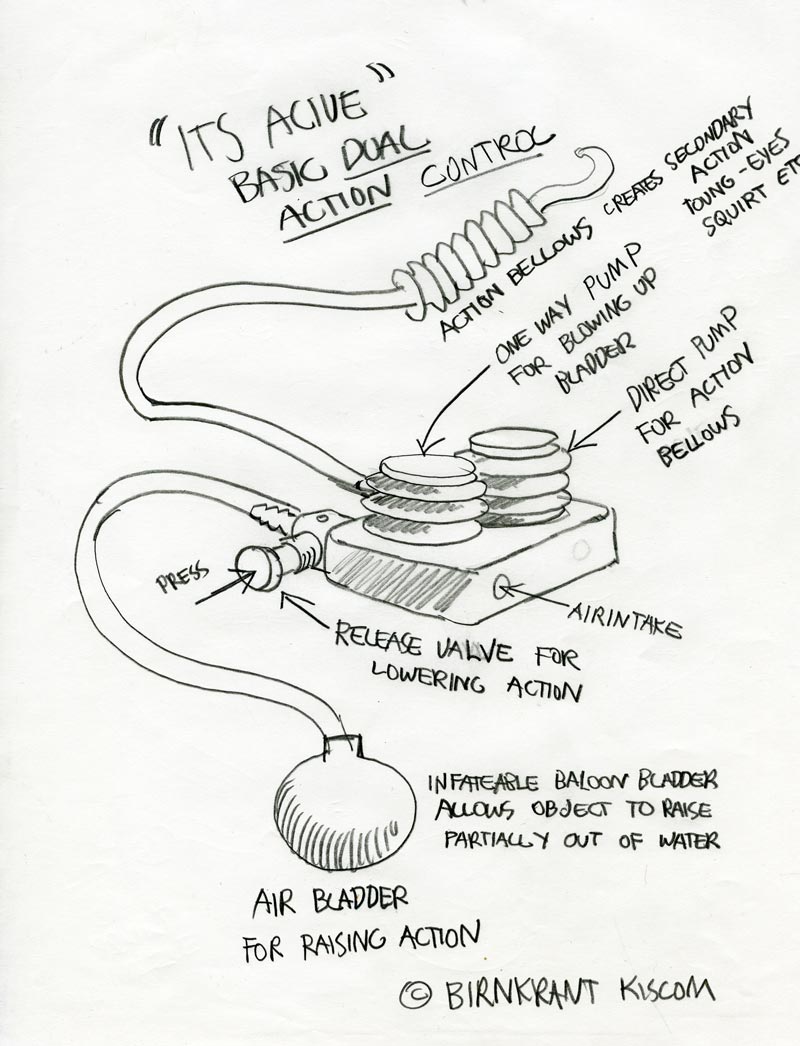 "ITS ALIVE"
BASIC DUAL
ACTION CONTROL
ACTION BELLOWS CREATES SECONDARY
ACTION
TOUNG-EYES
SQUIRT ETC
ONE WAY PUMP
FOR BLOWING UP
BLADDER
DIRECT PUMP
FOR ACTION
BELLOWS
PRESS
AIRINTAKE
RELEASE VALVE FOR
LOWERING ACTION
INFATEABLE BALOON BLADDER
ALLOWS OBJECT TO RAISE
PARTIALLY OUT OF WATER
AIR BLADDER
FOR RAISING ACTION
© BIRNKRANT KISCOM